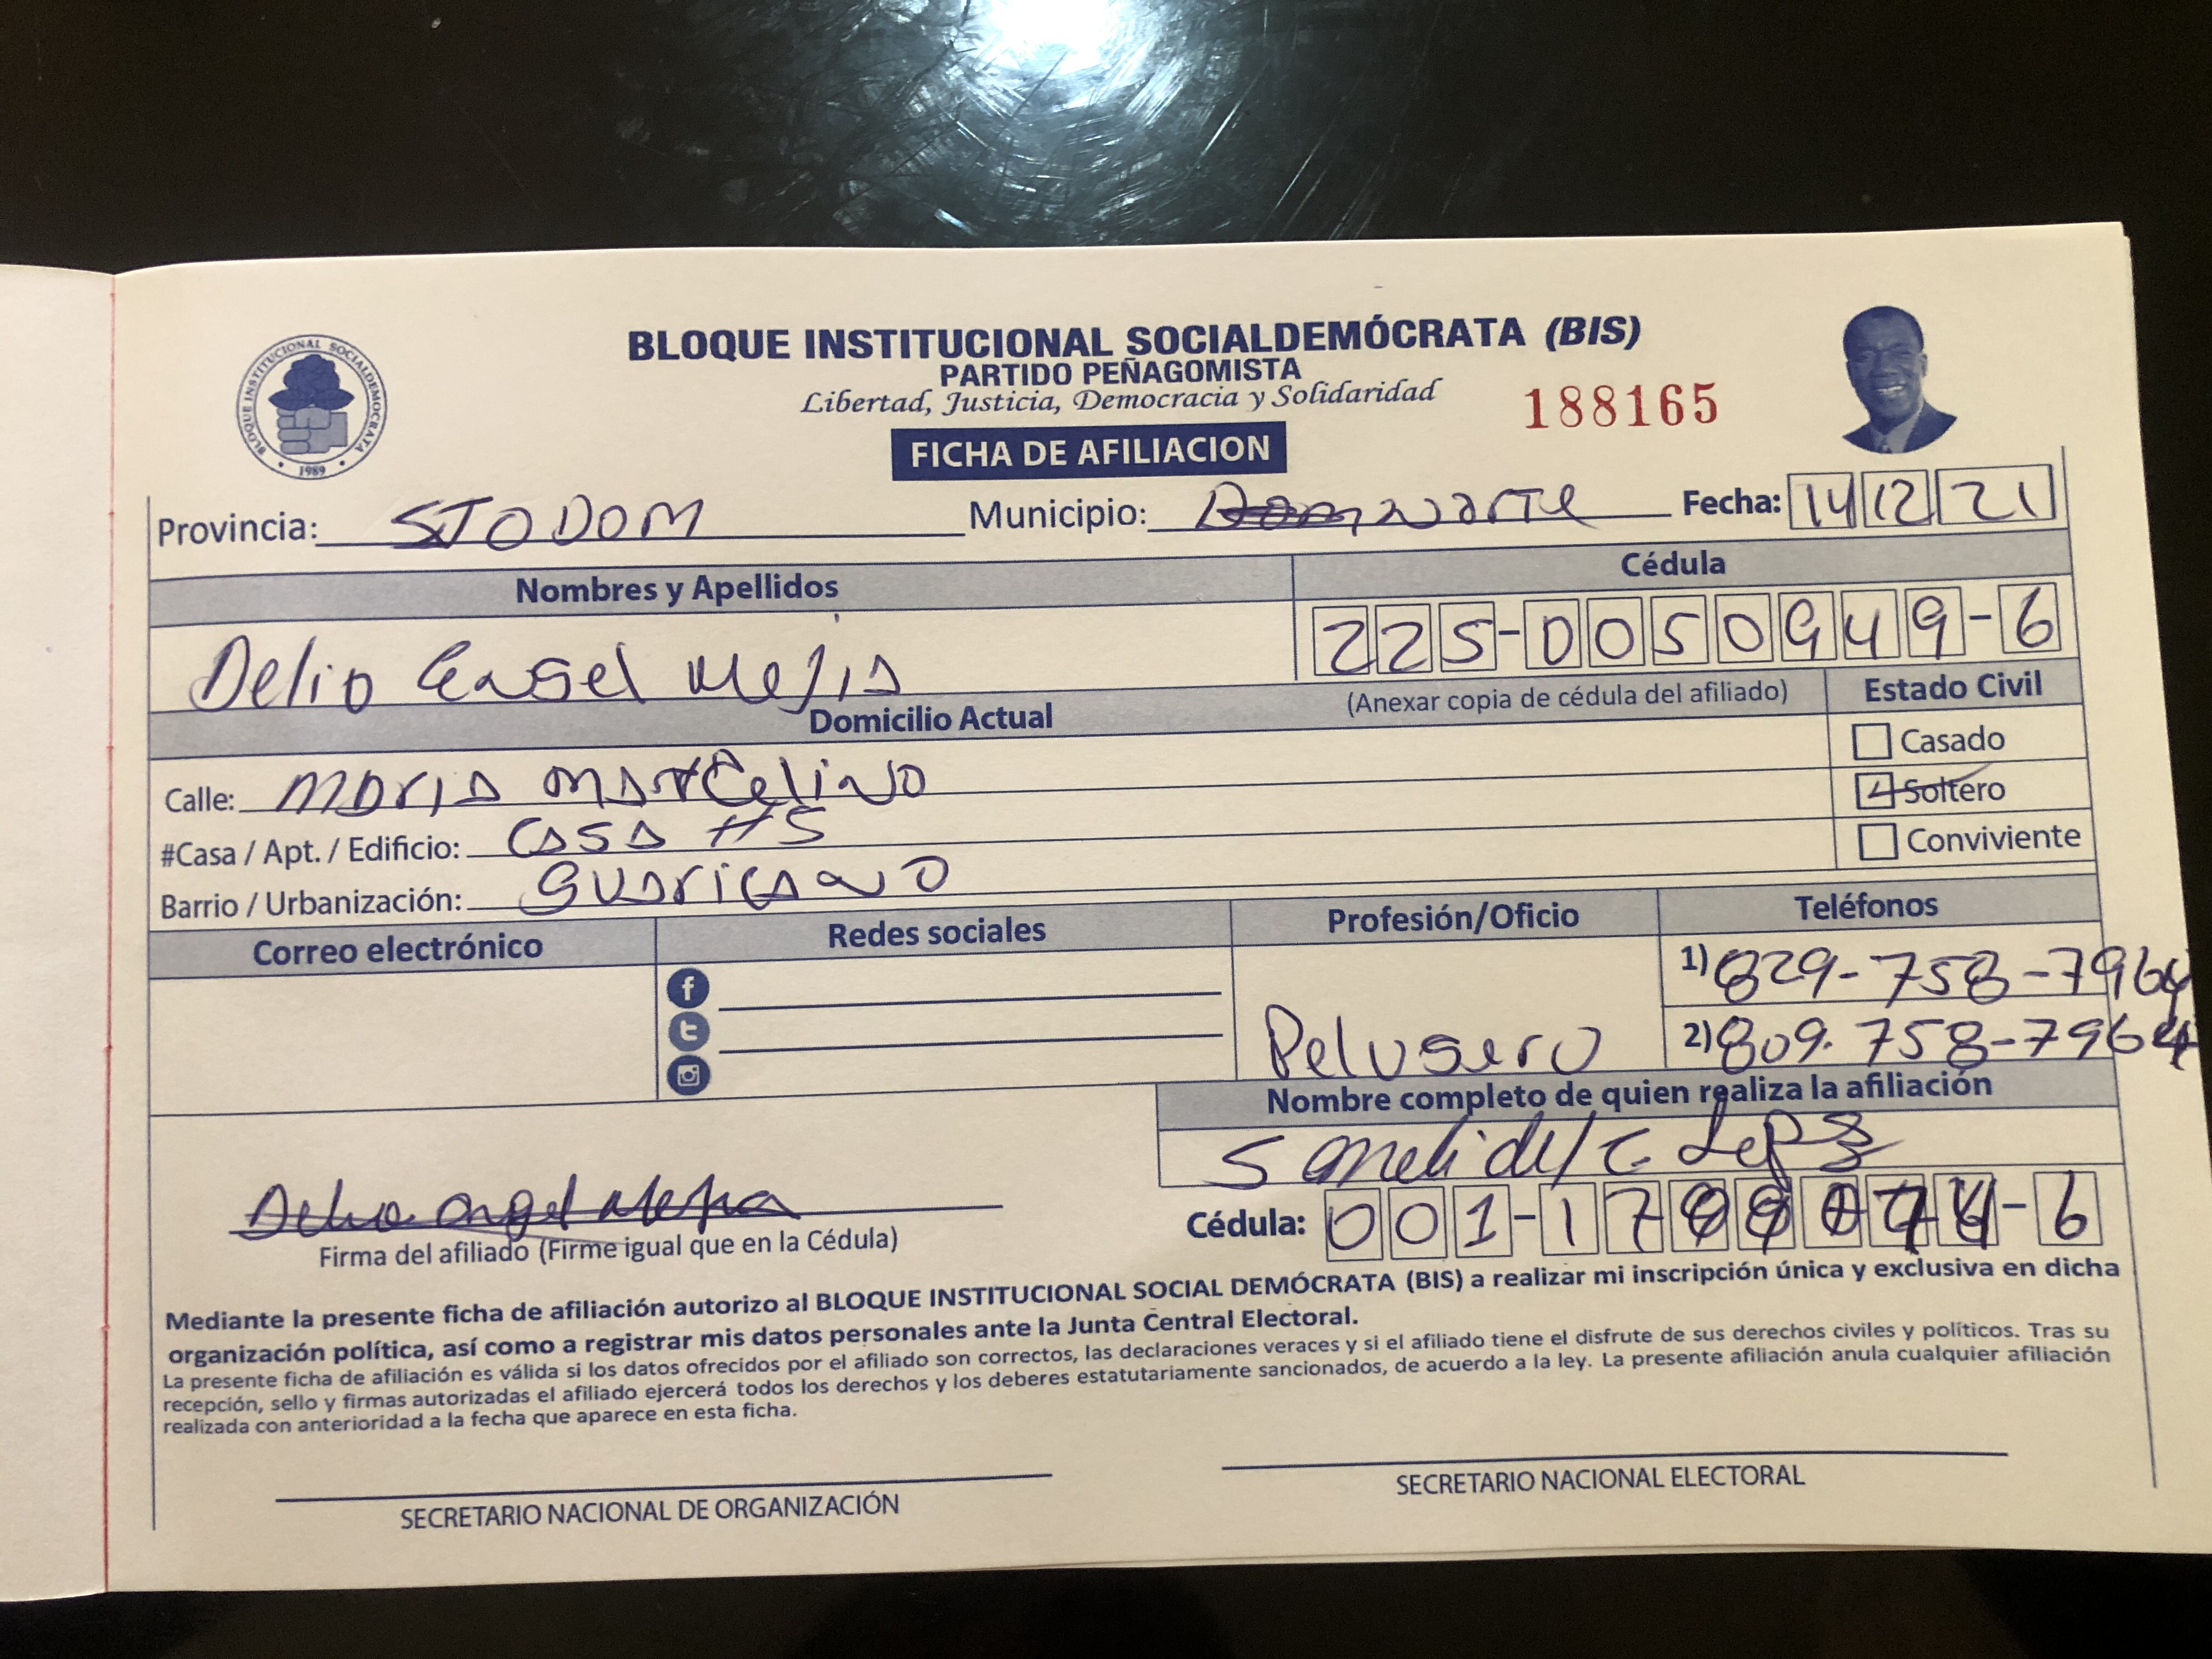 BLOQUE INSTITUCIONAL SOCIALDEMÓCRATA (BIS)
PARTIDO PEÑAGOMISTA
Libertad, Justicia, Democracia y Solidaridad
188165
BLOQUE INSTITUCIONAL SOCIALDEMOCRATA
• 1989 •
FICHA DE AFILIACION
Provincia: STO DOM Municipio: norte Fecha: 14 12 21
Nombres y Apellidos Cédula
Delio Angel Mejia 225-0050949-6
Domicilio Actual (Anexar copia de cédula del afiliado) Estado Civil
Casado
Calle: Maria Marcelino Soltero
#Casa / Apt. / Edificio: Casa #5 Conviviente
Barrio / Urbanización: Guaricano
Correo electrónico Redes sociales Profesión/Oficio Teléfonos
1) 829-758-7964
Peluquero 2) 809-758-7964
Nombre completo de quien realiza la afiliación
Delio Angel Mejia
Cédula: 001-17 -6
Firma del afiliado (Firme igual que en la Cédula)
Mediante la presente ficha de afiliación autorizo al BLOQUE INSTITUCIONAL SOCIAL DEMÓCRATA (BIS) a realizar mi inscripción única y exclusiva en dicha
organización política, así como a registrar mis datos personales ante la Junta Central Electoral.
La presente ficha de afiliación es válida si los datos ofrecidos por el afiliado son correctos, las declaraciones veraces y si el afiliado tiene el disfrute de sus derechos civiles y políticos. Tras su
recepción, sello y firmas autorizadas el afiliado ejercerá todos los derechos y los deberes estatutariamente sancionados, de acuerdo a la ley. La presente afiliación anula cualquier afiliación
realizada con anterioridad a la fecha que aparece en esta ficha.
SECRETARIO NACIONAL DE ORGANIZACIÓN SECRETARIO NACIONAL ELECTORAL